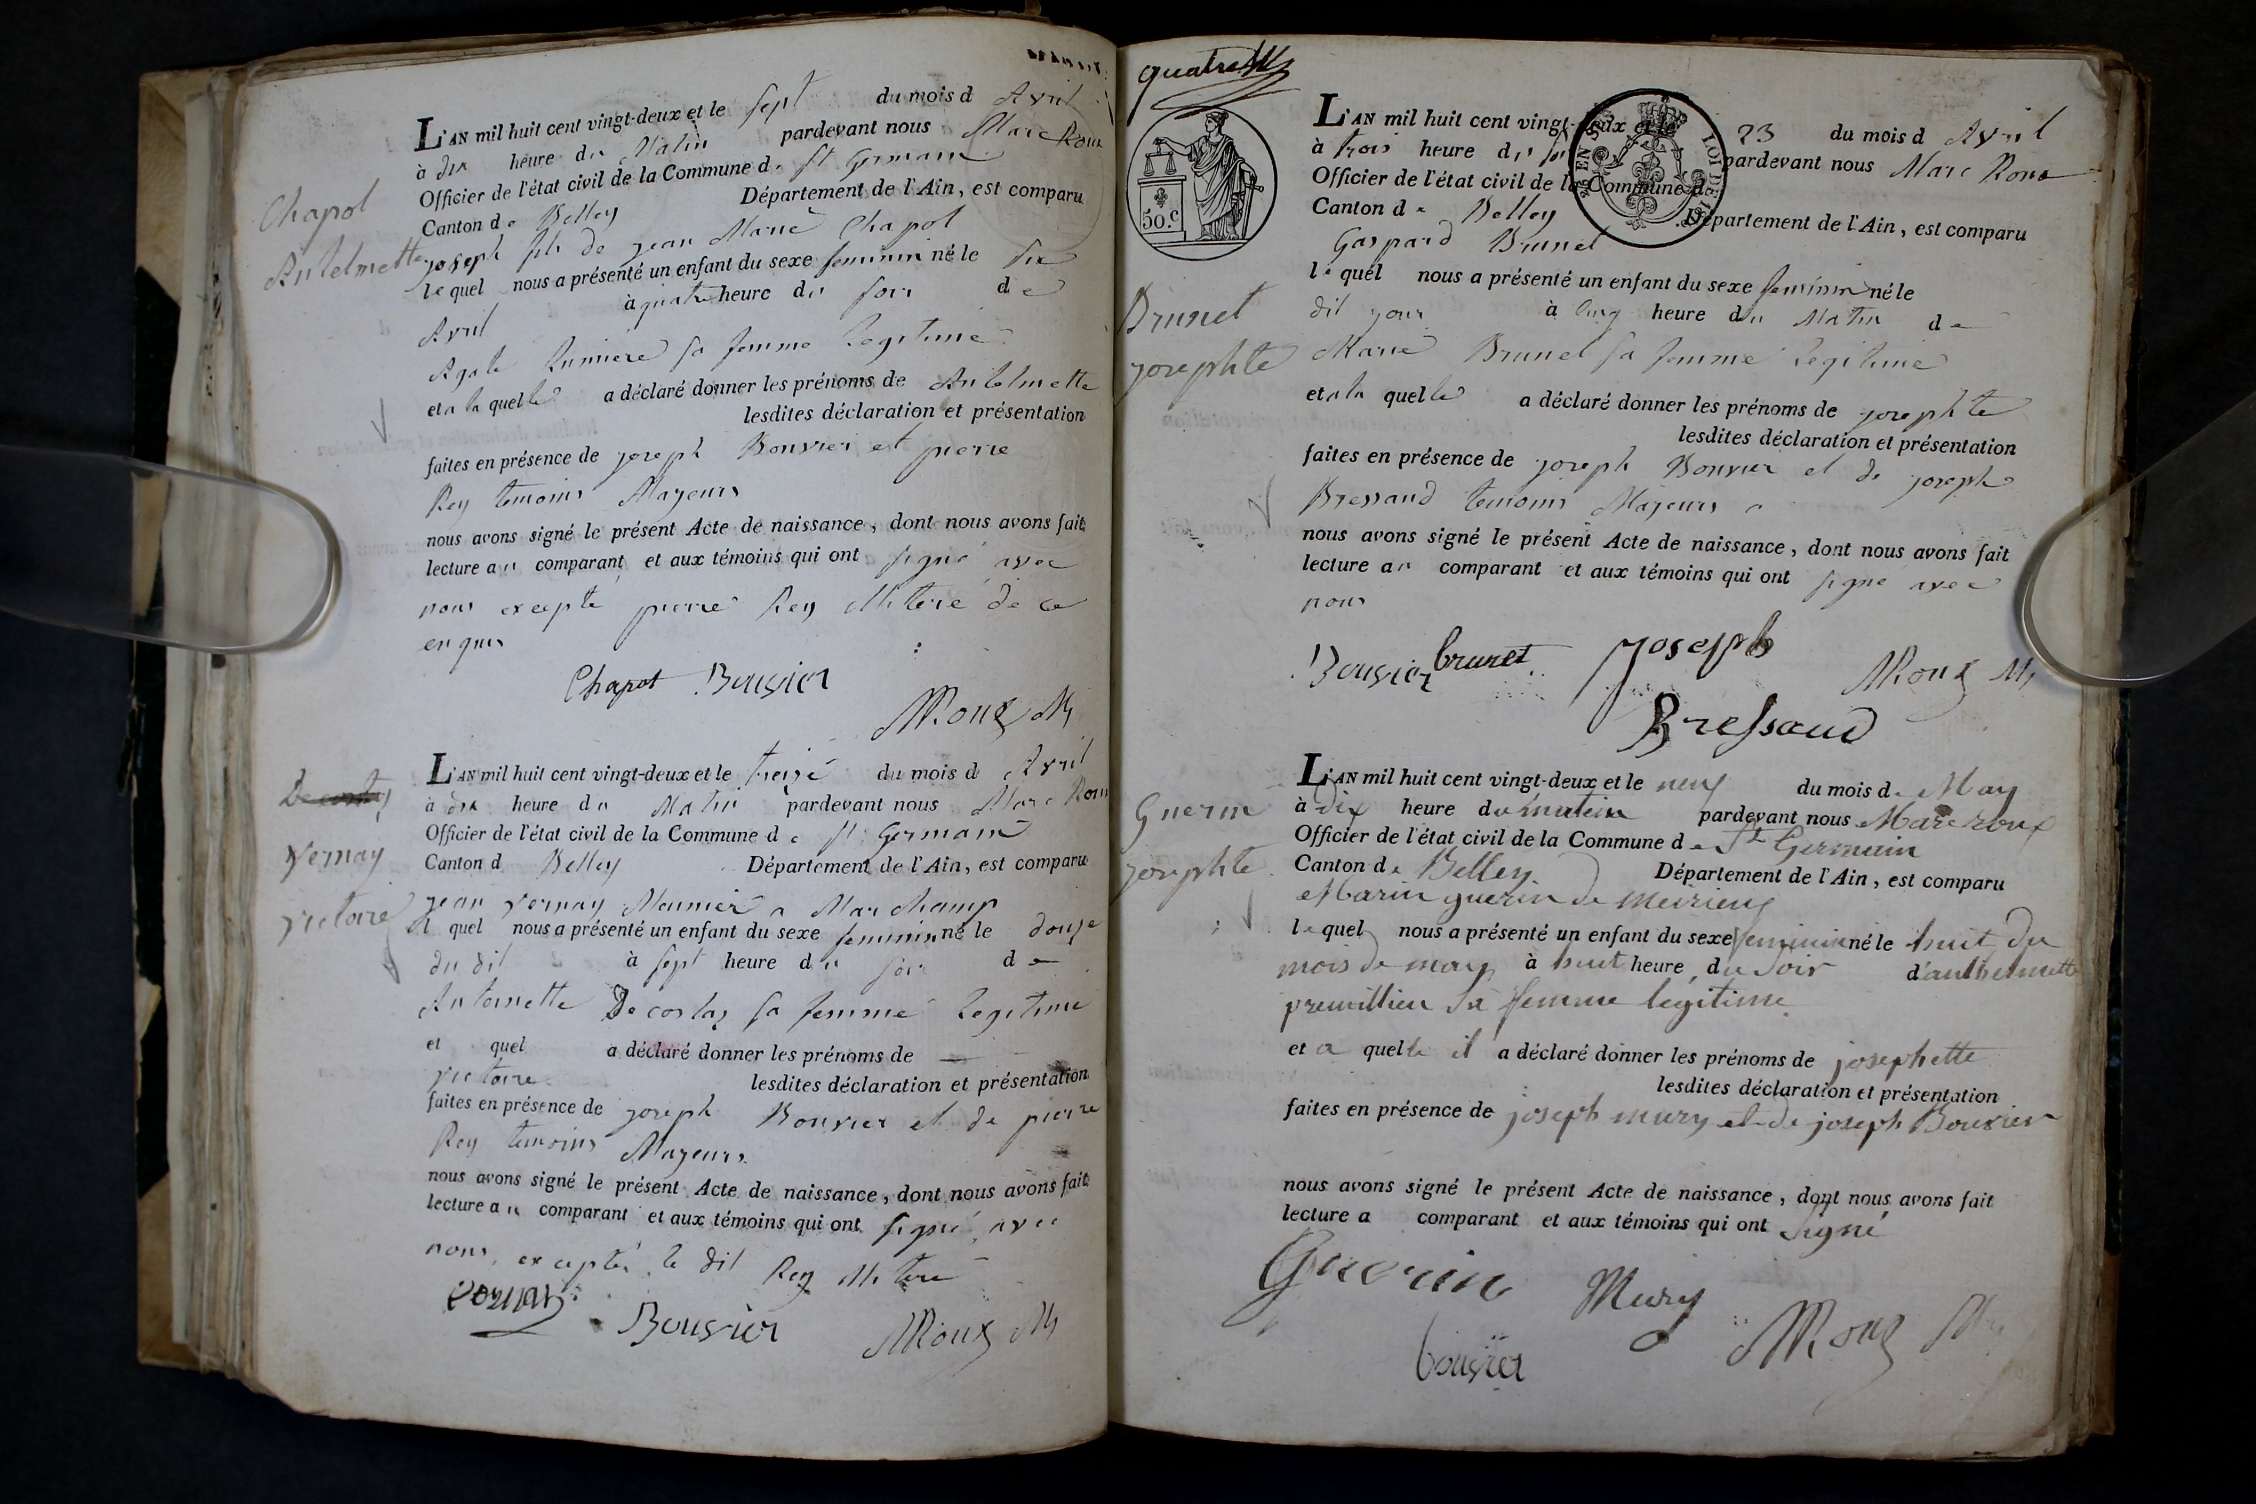 L'AN mil huit cent vingt-deux et le sept du mois d Avril
à dix heure du Matin pardevant nous Marc Roux
Officier de l'état civil de la Commune de St Germain
Canton de Belley Département de l'Ain, est comparu
joseph fils de jean Marie Chapot
le quel nous a présenté un enfant du sexe feminin né le six
Avril à quatre heure du soir de
Agate sa femme Legitime
et a la quelle a déclaré donner les prénoms de Antelmette
lesdites déclaration et présentation
faites en présence de joseph Bouvier et pierre
Rey temoins Majeurs
nous avons signé le présent Acte de naissance, dont nous avons fait
lecture au comparant et aux témoins qui ont signé avec
nous excepté pierre Rey illiteré de ce
enquis
Chapot Bouvier
MRoux M
Chapot
Antelmette
L'AN mil huit cent vingt-deux et le treize du mois d Avril
à dix heure du Matin pardevant nous Marc Roux
Officier de l'état civil de la Commune de St Germain
Canton d Belley Département de l'Ain, est comparu
jean Vernay Meunier a Marchamp
le quel nous a présenté un enfant du sexe feminin né le douze
du dit à sept heure du soir de
Antoinette Decostaz sa femme Legitime
et quel a déclaré donner les prénoms de
victoire lesdites déclaration et présentation
faites en présence de joseph Bouvier et de pierre
Rey temoins Majeurs
nous avons signé le présent Acte de naissance, dont nous avons fait
lecture au comparant et aux témoins qui ont signé avec
nous, excepté le dit Rey illiteré
vernay
Bouvier MRoux M
Vernay
victoire
quatre
50.c
L'AN mil huit cent vingt-deux et le 23 du mois d Avril
à trois heure du soir pardevant nous Marc Roux
Officier de l'état civil de la Commune de
Canton de Belley Département de l'Ain, est comparu
Gaspard Brunet
le quel nous a présenté un enfant du sexe feminin né le
dit jour à cinq heure du Matin de
Marie Brunet sa femme Legitime
et a la quelle a déclaré donner les prénoms de josephte
lesdites déclaration et présentation
faites en présence de joseph Bouvier et de joseph
Bressaud temoins Majeurs
nous avons signé le présent Acte de naissance, dont nous avons fait
lecture au comparant et aux témoins qui ont signé avec
nous
Bouvier brunet joseph
MRoux M
Bressaud
Brunet
josephte
L'AN mil huit cent vingt-deux et le neuf du mois de May
à dix heure du matin pardevant nous Marc roux
Officier de l'état civil de la Commune de St Germain
Canton de Belley Département de l'Ain, est comparu
Marin guerin de meirieu
le quel nous a présenté un enfant du sexe feminin né le huit du
mois de may à huit heure du soir d'anthelmette
premillieu sa femme legitime
et a quelle il a déclaré donner les prénoms de josephette
lesdites déclaration et présentation
faites en présence de joseph mury et de joseph Bouvier
nous avons signé le présent Acte de naissance, dont nous avons fait
lecture a comparant et aux témoins qui ont Signé
Guerin Mury MRoux M
bouvier
Guerin
josephte